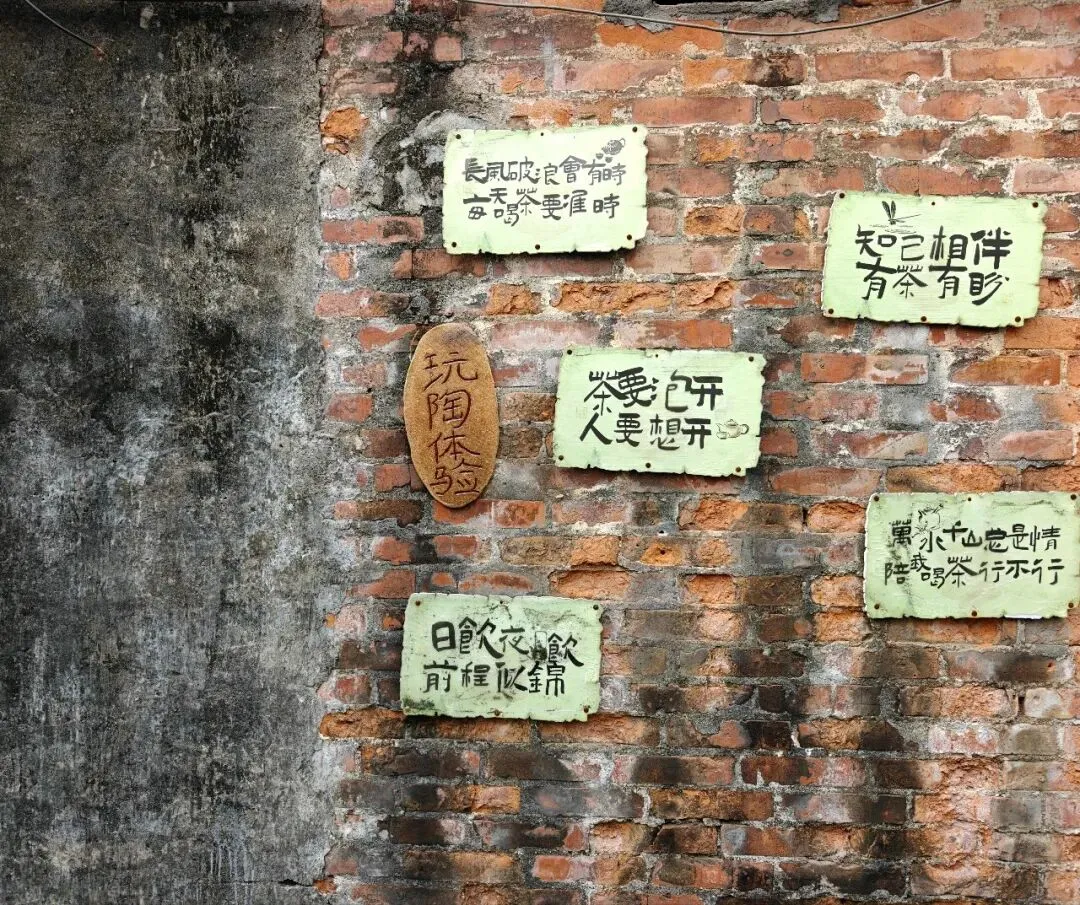 長風破浪會有時
每天喝茶要准時
知己相伴
有茶有盼
玩陶体验
茶要泡开
人要想开
萬水千山总是情
陪我喝茶行不行
日飲夜飲
前程似錦